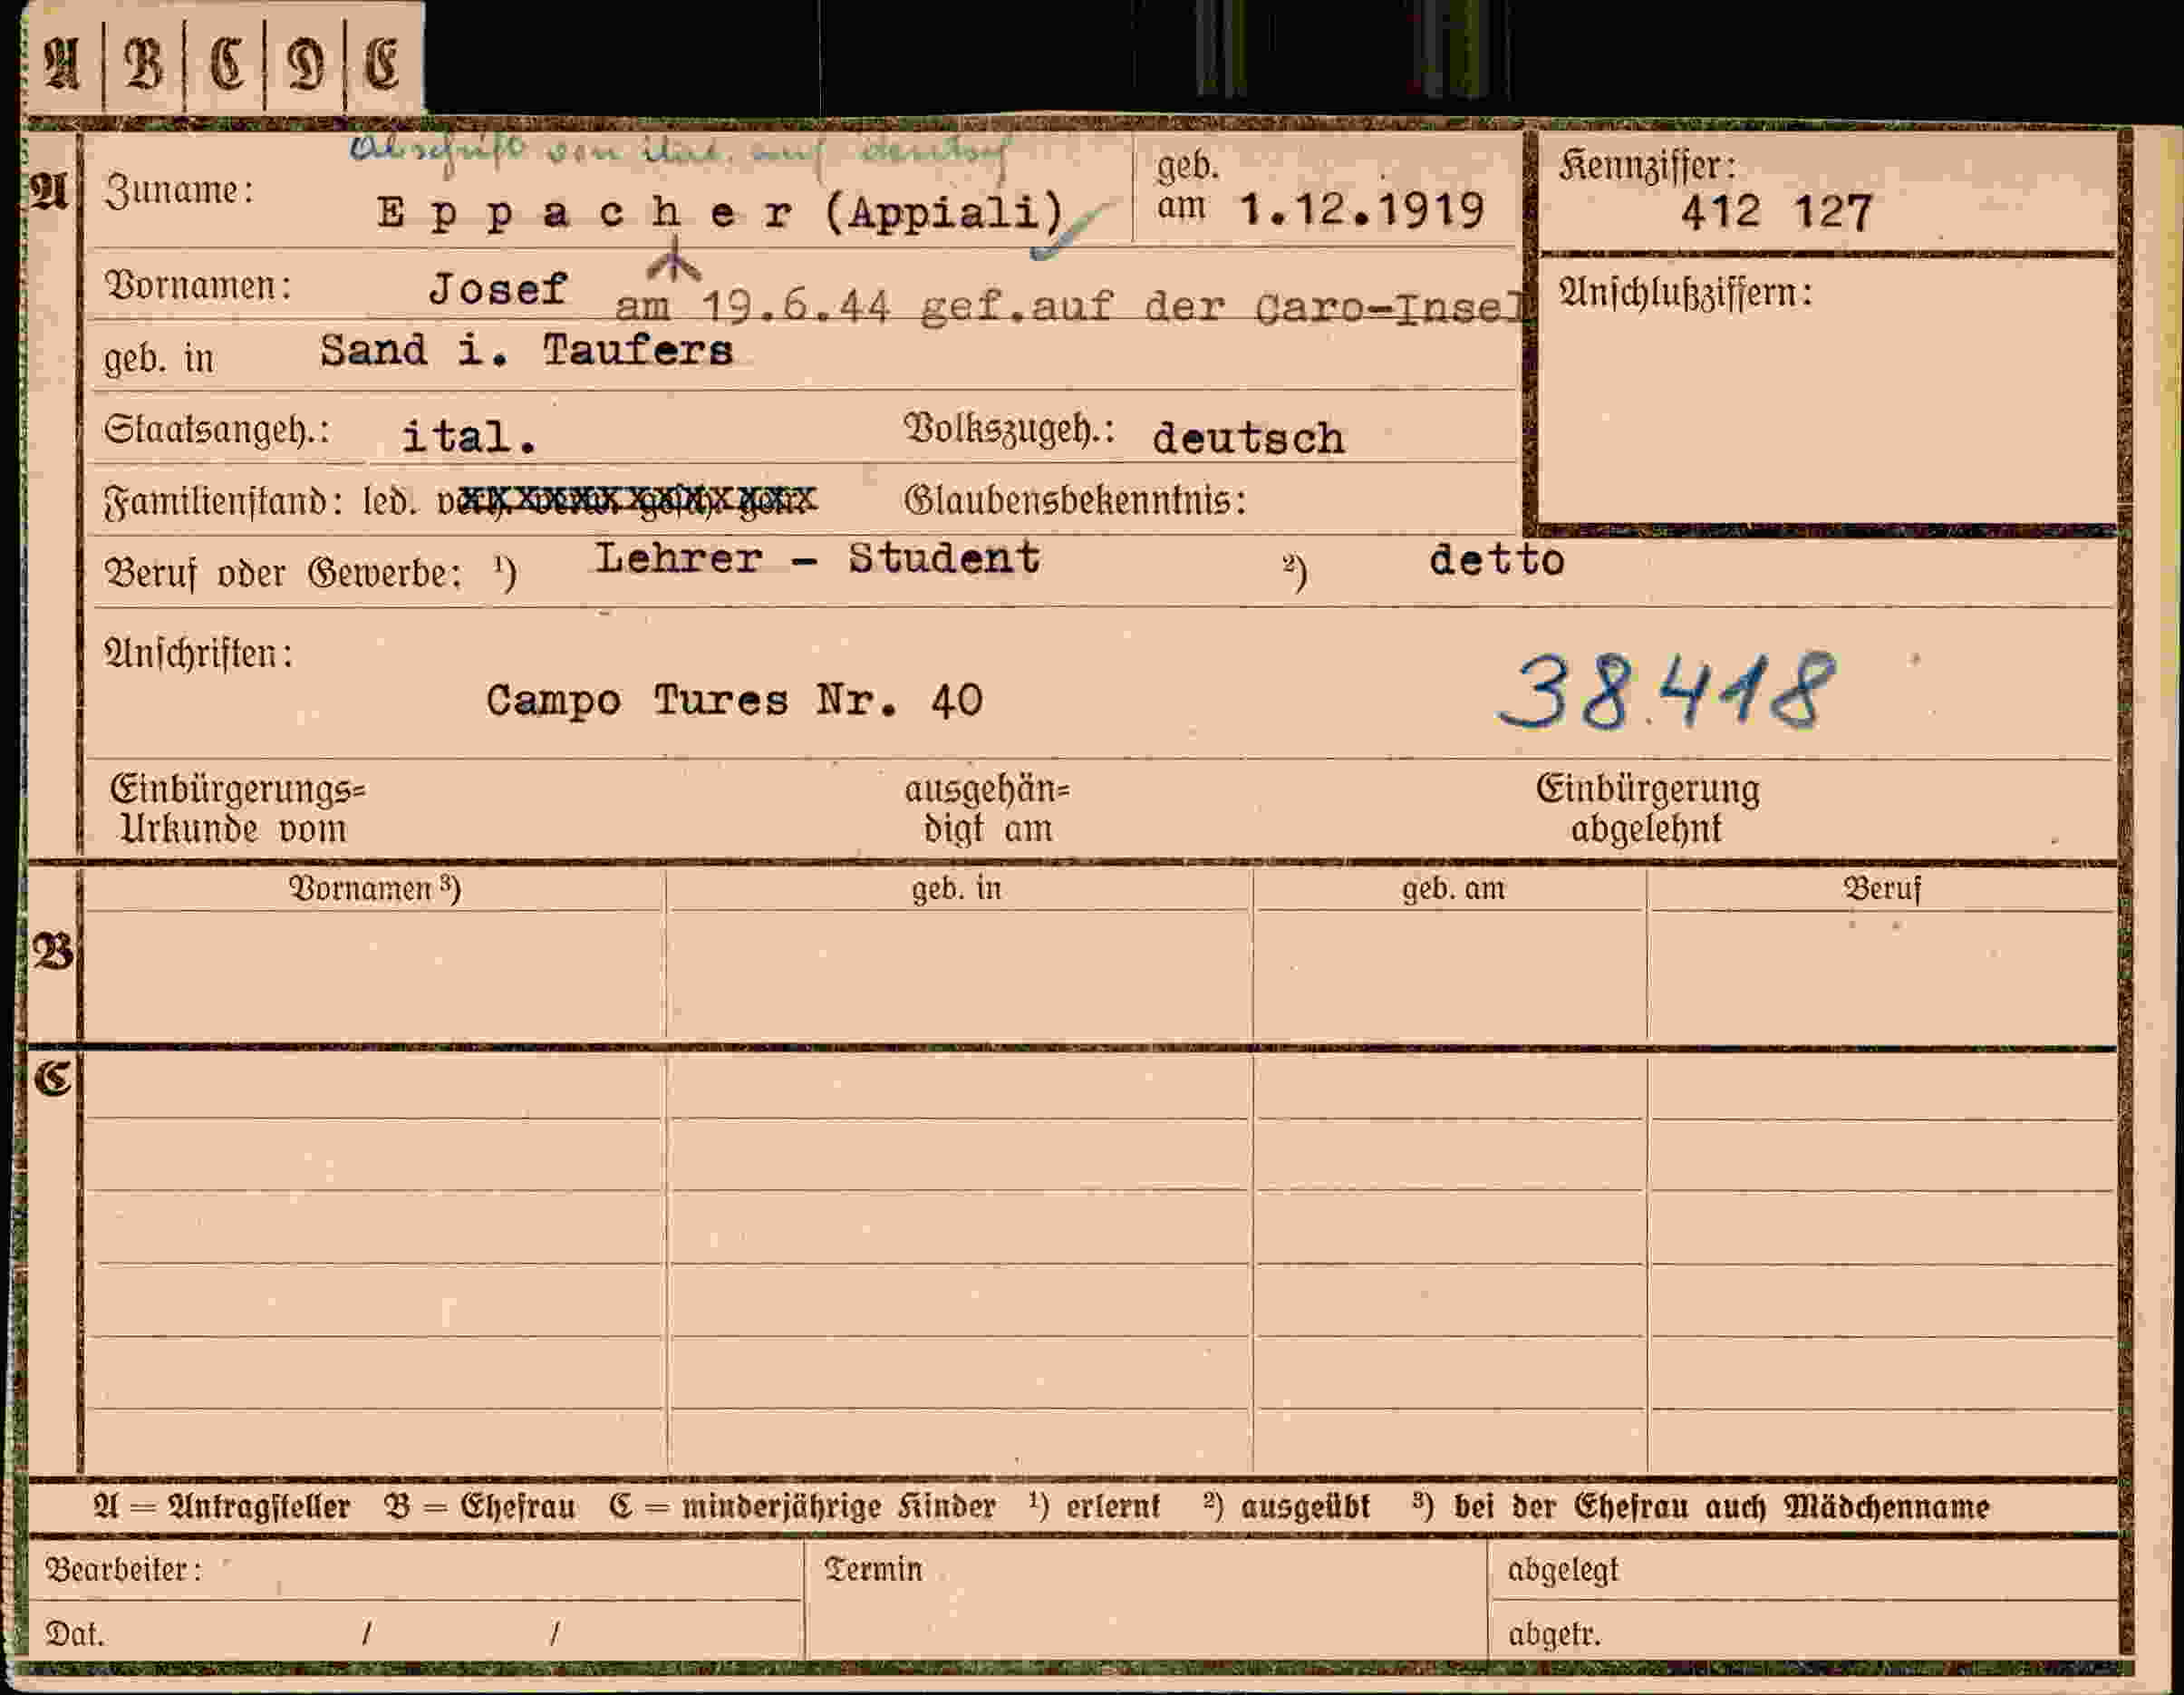 A | B | C | D | E
Abschrift von ital. auf deutsch
A Zuname: Eppacher (Appiali) geb. am 1.12.1919 Kennziffer: 412 127
Vornamen: Josef am 19.6.44 gef.auf der Caro-Insel Anschlußziffern:
geb. in Sand i. Taufers
Staatsangeh.: ital. Volkszugeh.: deutsch
Familienstand: led. verh. verw. gesch. getr. Glaubensbekenntnis:
Beruf oder Gewerbe: ¹) Lehrer - Student ²) detto
Anschriften:
Campo Tures Nr. 40 38.418
Einbürgerungs= ausgehän= Einbürgerung
Urkunde vom digt am abgelehnt
Vornamen ³) geb. in geb. am Beruf
B
C
A = Antragsteller B = Ehefrau C = minderjährige Kinder ¹) erlernt ²) ausgeübt ³) bei der Ehefrau auch Mädchenname
Bearbeiter: Termin abgelegt
Dat. / / abgetr.